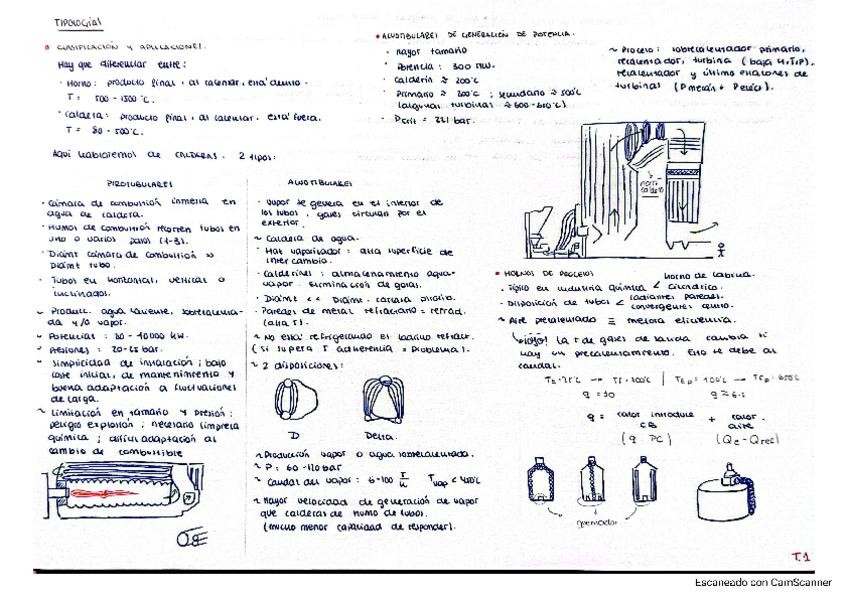 TIPOLOGÍAS
CLASIFICACIÓN Y APLICACIONES.
Hay que diferenciar entre:
· Horno: producto final, al calentar, está dentro.
T = 500 - 1500 °C.
· Caldera: producto final, al calentar, está fuera.
T = 80 - 500°C.
Aquí hablaremos de CALDERAS. 2 tipos:
PIROTUBULARES
· Cámara de combustión inmersa en
agua de caldera.
· Humos de combustión recorren tubos en
uno o varios pasos (1-3).
· Diámt cámara de combustión >>
Diámt tubo.
· Tubos en horizontal, vertical o
inclinados.
~ Producc. agua caliente, sobrecalenta-
da y/o vapor.
~ Potencias: 30 - 10000 kW.
~ Presiones: 20-25 bar.
~ Simplicidad de instalación; bajo
coste inicial, de mantenimiento y
buena adaptación a fluctuaciones
de carga.
~ Limitación en tamaño y presión;
peligro explosión; necesario limpieza
química; difícil adaptación al
cambio de combustible
ACUOTUBULARES
· Vapor se genera en el interior de
los tubos, gases circulan por el
exterior.
~ Caldera de agua.
· Haz vaporizador: alta superficie de
intercambio.
· Calderines: almacenamiento agua-
vapor. Eliminación de gotas.
· Diámt << Diámt.
· Paredes de metal refractario
(alta T).
~ No está refrigerado el
(si supera T adherencia = problema).
~ 2 disposiciones:
D Delta.
~ Producción vapor o agua sobrecalentada.
~ P: 60-120 bar
~ Caudal del vapor: 6-100 T/h Tvap < 450°C
~ Mayor velocidad de generación de vapor
que calderas de humo de tubos.
(mucho menor capacidad de responder).
ACUOTUBULARES DE GENERACIÓN DE POTENCIA.
· Mayor tamaño
· Potencia: 300 MW.
· Calderín ≈ 200°C
· Primario ≈ 300°C; secundario ≈ 500°C
(algunas turbinas ≈ 600-610°C)
· Pcrit = 221 bar.
~ Proceso: sobrecalentador primario,
recalentador, turbina (baja H,T,P),
recalentador y últimos escalones de
turbinas
HORNOS DE PROCESO
Horno de cabina.
· Típico en industria química < Cilíndrico.
· Disposición de tubos < radiantes paredes.
convergentes centro.
~ Aire precalentado ≡ mejora eficiencia.
¡ojo! La T de gases de salida cambia si
hay un precalentamiento. Esto se debe al
caudal.
q = calor introduce + calor.
CB aire
(q · PC) (Qe - Qrec)
quemador
T.1
Escaneado con CamScanner